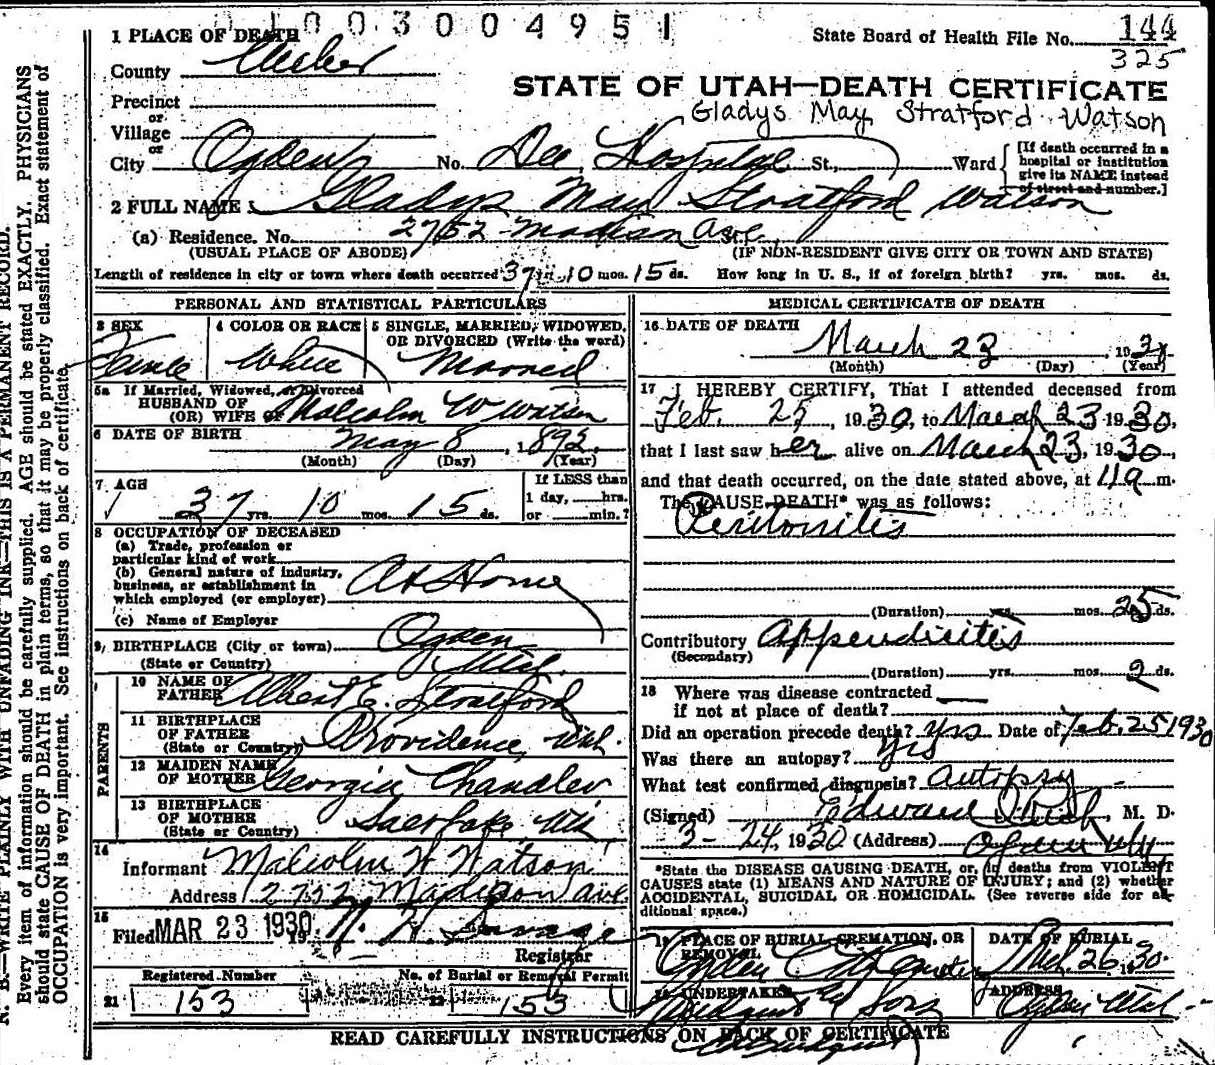 0 1 0 0 3 0 0 4 9 5 1
1 PLACE OF DEATH
State Board of Health File No. 144
325
County Weber
STATE OF UTAH—DEATH CERTIFICATE
Precinct
Gladys May Stratford Watson
or
Village
or
City Ogden No. Dee Hospital St., Ward
[If death occurred in a hospital or institution give its NAME instead of street and number.]
2 FULL NAME Gladys May Stratford Watson
(a) Residence. No. 2752 Madison Ave St.
(USUAL PLACE OF ABODE) (IF NON-RESIDENT GIVE CITY OR TOWN AND STATE)
Length of residence in city or town where death occurred 37 yrs. 10 mos. 15 ds. How long in U. S., if of foreign birth? yrs. mos. ds.
PERSONAL AND STATISTICAL PARTICULARS
3 SEX Female
4 COLOR OR RACE White
5 SINGLE, MARRIED, WIDOWED, OR DIVORCED (Write the word) Married
5a If Married, Widowed, or Divorced
HUSBAND OF
(OR) WIFE OF Malcolm W Watson
6 DATE OF BIRTH May 8, 1892
(Month) (Day) (Year)
7 AGE 37 yrs. 10 mos. 15 ds.
If LESS than
1 day, hrs.
or min.?
8 OCCUPATION OF DECEASED
(a) Trade, profession or
particular kind of work
(b) General nature of industry,
business, or establishment in
which employed (or employer) At Home
(c) Name of Employer
9 BIRTHPLACE (City or town) Ogden
(State or Country) Utah
PARENTS
10 NAME OF FATHER Albert E. Stratford
11 BIRTHPLACE OF FATHER (State or Country) Providence, Utah.
12 MAIDEN NAME OF MOTHER Georgia Chandler
13 BIRTHPLACE OF MOTHER (State or Country) Salt Lake, Utah
14
Informant Malcolm W Watson
Address 2752 Madison ave.
15
Filed MAR 23 1930 19
Registrar
Registered Number
21 153
No. of Burial or Removal Permit
22 153
MEDICAL CERTIFICATE OF DEATH
16 DATE OF DEATH
March 23, 1930
(Month) (Day) (Year)
17 I HEREBY CERTIFY, That I attended deceased from
Feb. 25, 1930, to March 23 1930,
that I last saw her alive on March 23, 1930,
and that death occurred, on the date stated above, at m.
The CAUSE DEATH* was as follows:
Peritonitis
(Duration) yrs. mos. 25 ds.
Contributory Appendicitis
(Secondary)
(Duration) yrs. mos. 2 ds.
18 Where was disease contracted
if not at place of death?
Did an operation precede death? Yes Date of Feb. 25 1930
Was there an autopsy? Yes
What test confirmed diagnosis? Autopsy
(Signed) Edward M. D.
3-24, 1930 (Address) Ogden Utah
*State the DISEASE CAUSING DEATH, or, in deaths from VIOLENT
CAUSES state (1) MEANS AND NATURE OF INJURY; and (2) whether
ACCIDENTAL, SUICIDAL OR HOMICIDAL. (See reverse side for ad-
ditional space.)
19 PLACE OF BURIAL, CREMATION, OR REMOVAL
Ogden City Cemetery
DATE OF BURIAL
Mch. 26 1930.
20 UNDERTAKER & Sons
ADDRESS
Ogden Utah
READ CAREFULLY INSTRUCTIONS ON BACK OF CERTIFICATE
N. B.—WRITE PLAINLY WITH UNFADING INK—THIS IS A PERMANENT RECORD.
Every item of information should be carefully supplied. AGE should be stated EXACTLY. PHYSICIANS
should state CAUSE OF DEATH in plain terms, so that it may be properly classified. Exact statement of
OCCUPATION is very important. See instructions on back of certificate.